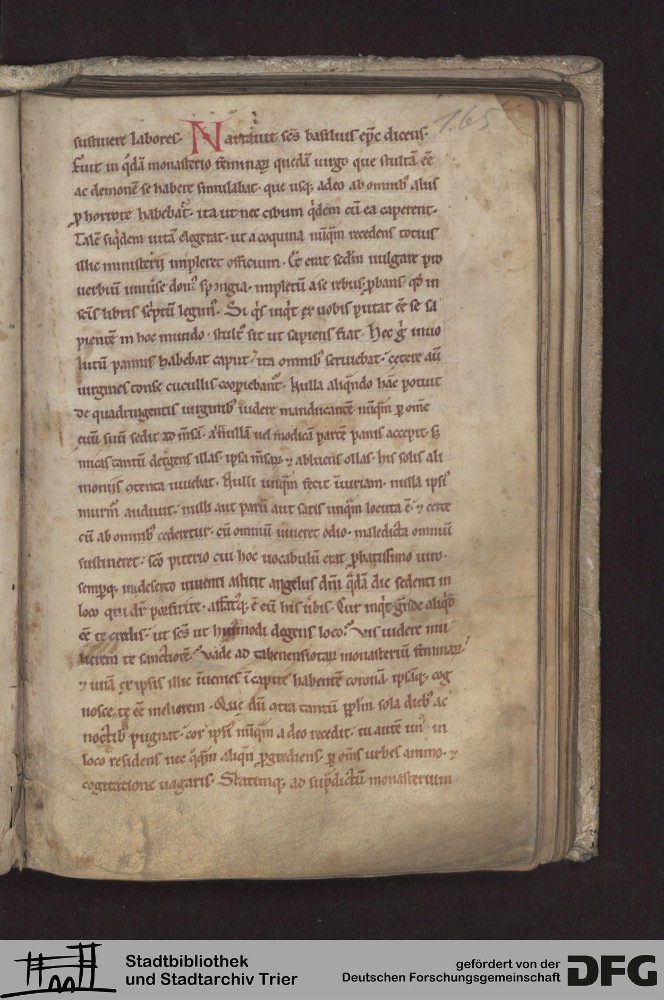 165
sustinere labores. Narrauit scs basilius epc dicens.
Fuit in qdā monasterio feminaꝝ quedā uirgo que stultā eē
ac demonē se habere simulabat. que usq; adeo ab omnib; aliis
ꝑ horrore habebat. ita ut nec cibum qdem cū ea caperent.
Talē siqdem uitā elegerat. ut a coquina nūqm recedens totius
illic ministerii impleret officium. Et erat sedm uulgare pro
uerbiū uniuse dom spongia. impletū a se rebus ꝓbans. qd in
scīs libris scptū legim. Si qs inqt ex uobis putat eē se sa
pientē in hoc mundo. stult fit ut sapiens fiat. Hec g inuo
lutū pannis habebat caput. ita omnib; seruiebat. cetere aū
uirgines tonse cucullis cooꝑiebant. Nulla aliqndo hanc potuit
de quadringentis uirginib; uidere manducantē. nūqm ꝑ omē
euū suū sedit ad mēsā. a nullā uel modicā partē panis accepit. sꝫ
micas tantū detgens illas. ipsa msaꝝ. ⁊ abluens ollas. his solis ali
moniis ꝯtenta uiuebat. Nulli unqm fecit iniuriam. nulla ipsi
murm audiuit. nulli aut parū aut satis unqm locuta ē. ⁊ certe
cū ab omnib; cederetur. cū omniū uiueret odio. maledicta omniū
sustineret. scō piterio cui hoc uocabulū erat ꝓbatissimo uiro.
semꝑq; in deserto uiuenti astitit angelus dnī qdā die sedenti in
loco qui dr porfirite. affatq; ē eū his ūbis. Cur inqt grande aliqd
eē te credis. ut scs ut huimodi degens loco? Vis uidere mu
lierem te sanctiorē? Vade ad tabenensiotaꝝ monasteriū feminaꝝ.
⁊ unā ex ipsis illic inuenies in capite habentē coronā. ipsāq; cog
nosce te eē meliorem. Que dū ꝯtra tantū pplm sola dieb; ac
noctib; pugnat. cor ipsi nūqm a deo recedit. tu autē un in
loco residens nec qqm aliqn ꝓgrediens. ꝑ oms urbes animo. ⁊
cogitatione uagaris. Statimq; ad supdictū monasterium
Stadtbibliothek
und Stadtarchiv Trier
gefördert von der
Deutschen Forschungsgemeinschaft
DFG